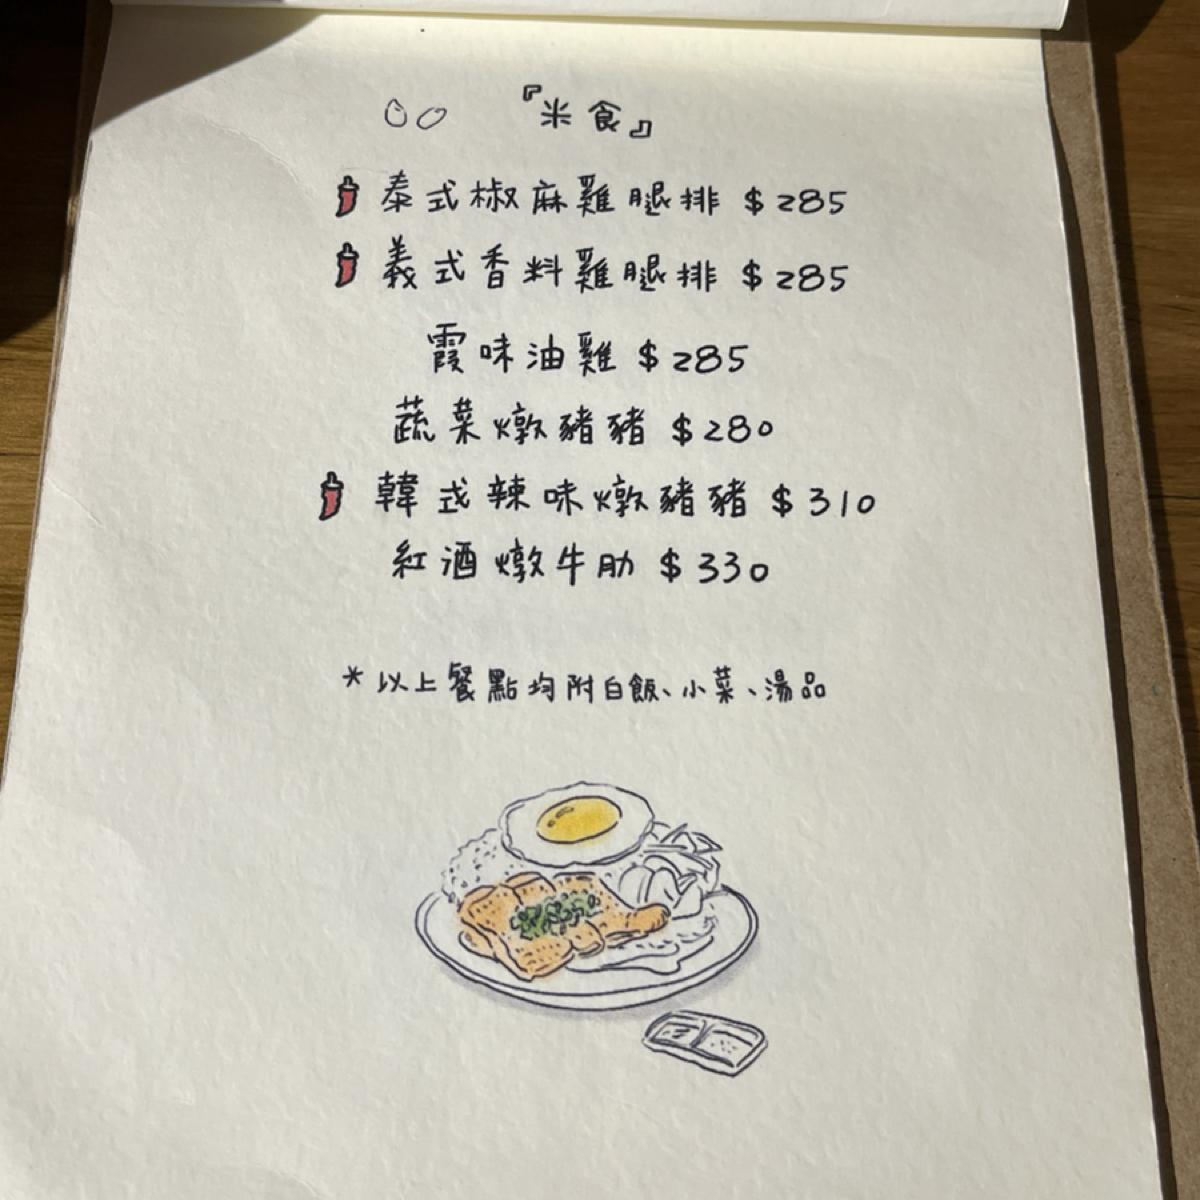 『米食』
泰式椒麻雞腿排 $285
義式香料雞腿排 $285
霞味油雞 $285
蔬菜燉豬豬 $280
韓式辣味燉豬豬 $310
紅酒燉牛肋 $330
*以上餐點均附白飯、小菜、湯品